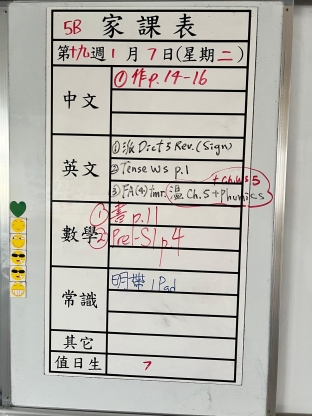 5B 家課表
第十九週1月7日(星期二)
中文
①作p.14-16
英文
①派Dict 3 Rev. (Sign
②Tense WS p.1
+ch.ws 5
③FA(4) imr. 溫Ch.5+Phonics
數學
①書p.11
②Pre1-S1 p4
常識
明帶iPad
其它
值日生
7